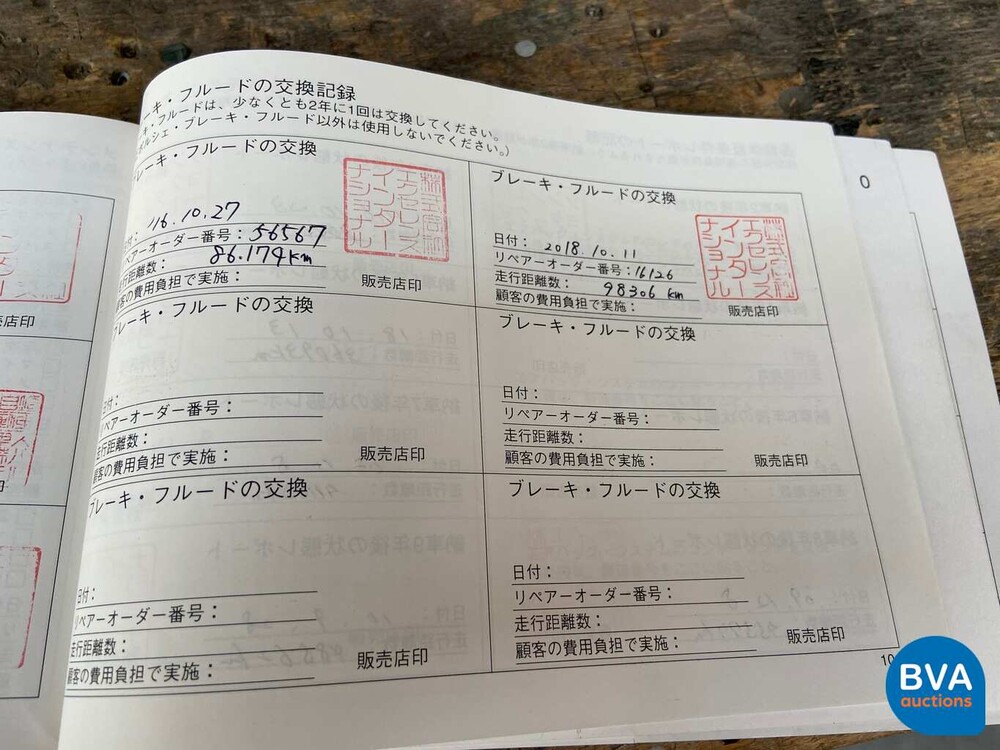 ーキ・フルードの交換記録
・フルードは、少なくとも2年に1回は交換してください。
ポルシェ・ブレーキ・フルード以外は使用しないでください。)
ブレーキ・フルードの交換
16.10.27
日付:
リペアーオーダー番号: 56567
走行距離数: 86.174km
顧客の費用負担で実施:
販売店印
株式会社
エクセレンス
インター
ナショナル
ブレーキ・フルードの交換
日付: 2018.10.11
リペアーオーダー番号: 16126
走行距離数: 98306 km
顧客の費用負担で実施:
販売店印
株式会社
エクセレンス
インター
ナショナル
ブレーキ・フルードの交換
日付:
リペアーオーダー番号:
走行距離数:
顧客の費用負担で実施:
販売店印
ブレーキ・フルードの交換
日付:
リペアーオーダー番号:
走行距離数:
顧客の費用負担で実施:
販売店印
ブレーキ・フルードの交換
日付:
リペアーオーダー番号:
走行距離数:
顧客の費用負担で実施:
販売店印
ブレーキ・フルードの交換
日付:
リペアーオーダー番号:
走行距離数:
顧客の費用負担で実施:
販売店印
10
0
BVA
auctions